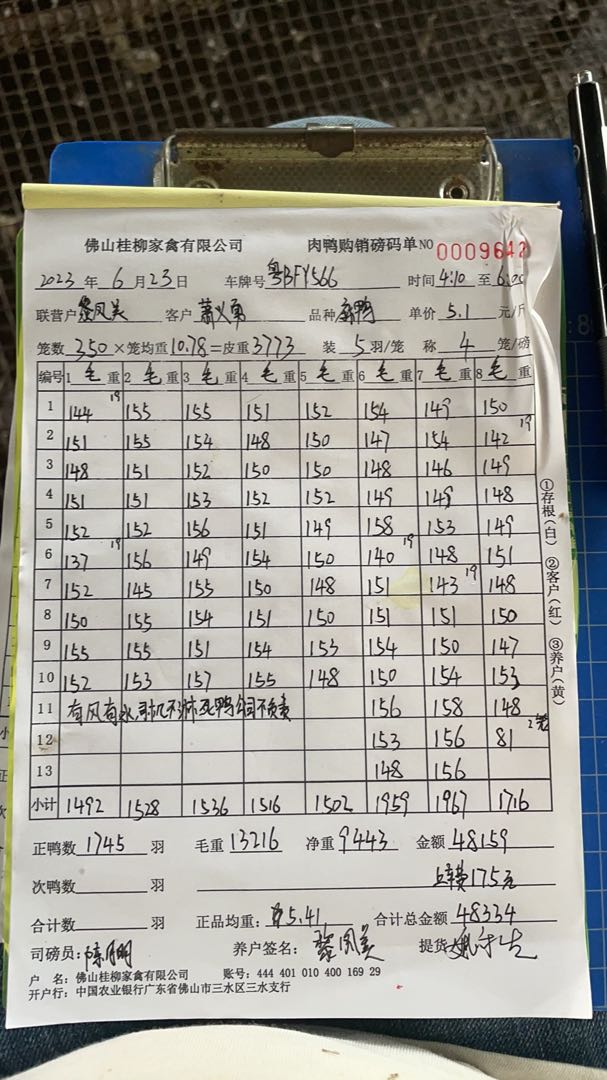 佛山桂柳家禽有限公司 肉鸭购销磅码单 NO 0009642
2023 年 6 月 23 日 车牌号 粤BFY566 时间 4:10 至 6:00
联营户 黎凤美 客户 萧义勇 品种 麻鸭 单价 5.1 元/斤
笼数 350 × 笼均重 10.78 = 皮重 3773 装 5 羽/笼 称 4 笼/磅
编号 1 毛 重 2 毛 重 3 毛 重 4 毛 重 5 毛 重 6 毛 重 7 毛 重 8 毛 重
1 144 19 155 155 151 152 154 149 150
2 151 155 154 148 150 147 154 142 19
3 148 151 152 150 150 148 146 149
4 151 151 153 152 152 149 149 148
5 152 152 156 151 149 158 153 149
6 137 19 156 149 154 150 140 19 148 151
7 152 145 155 150 148 151 143 19 148
8 150 155 154 151 150 151 151 150
9 155 155 151 154 153 154 150 147
10 152 153 157 155 148 150 154 153
11 有风有水司机不淋死鸭公司不负责 156 158 148
12 153 156 81 2笼
13 148 156
小计 1492 1528 1536 1516 1502 1959 1967 1716
正鸭数 1745 羽 毛重 13216 净重 9443 金额 48159
次鸭数 羽 175元
合计数 羽 正品均重: 5.41 合计总金额 48334
司磅员: 养户签名: 黎凤美 提货
户 名: 佛山桂柳家禽有限公司 账号: 444 401 010 400 169 29
开户行: 中国农业银行广东省佛山市三水区三水支行
①存根(白) ②客户(红) ③养户(黄)